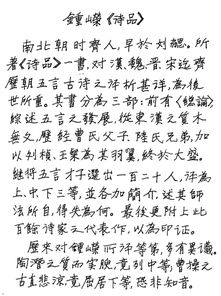 鍾嶸《詩品》
南北朝时齊人,早於刘勰。所
著《詩品》一書,对漢,魏晉,宋迄齊
歷朝五言古诗之评析甚详,為後
世所重。其書分為三部:前有《總論》
综述五言之發展,從東漢之質木
無文,歷經曹氏父子,陸氏兄弟,加
以刘楨,王粲為其羽翼,終於大盛。
继将五言才子選出一百二十人,评為
上,中,下三等,並各加简介,述其师
法所自,得失為何。最後更附上此
百餘诗家之代表作,以為印证。
歷來对鍾嶸所评等第,多有異議。
陶潛之質而实腴,竟列中等,曹操之
古直悲凉,竟屈居下等,恐非知音。